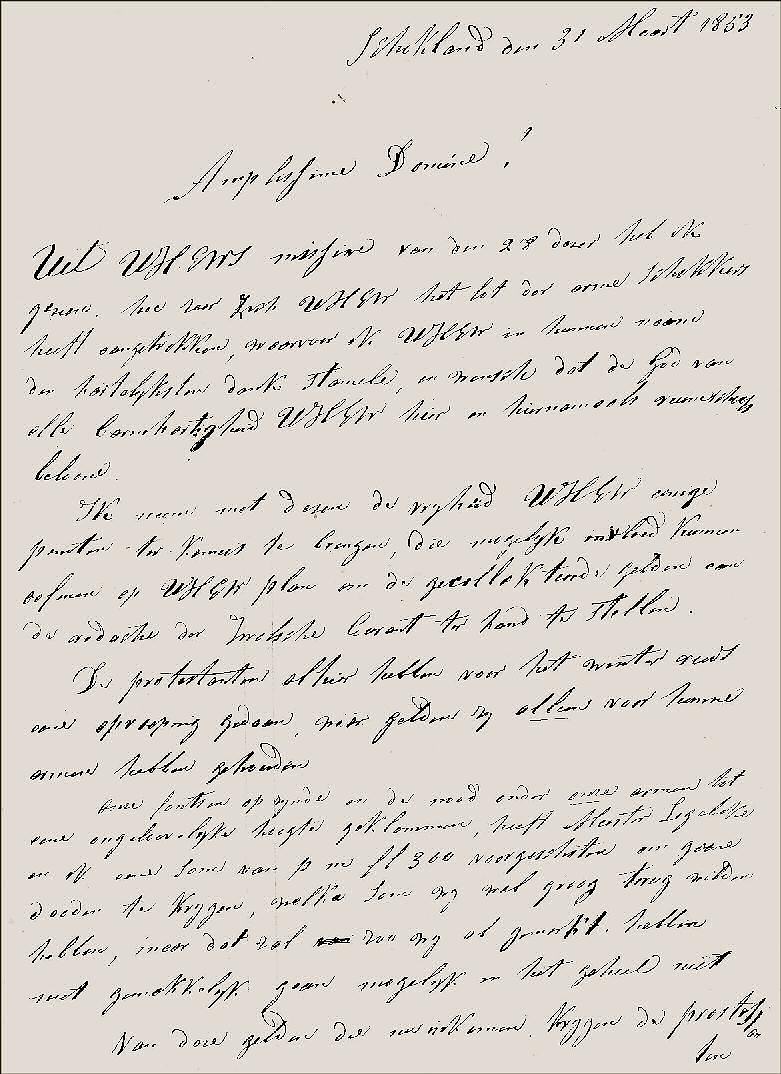 Schokland den 31 Maart 1853
Amplissime Domine!
Uit UHEWs missive van den 28 dezer heb ik
gezien, hoe zeer zich UHEW het lot der arme Schokkers
heeft aangetrokken, waarvoor ik UHEW in hunnen naam
den hartelijksten dank stamele, en wensch dat de God van
alle barmhartigheid UHEW hier en hiernamaals
beloone.
Ik neem met dezen de vryheid UHEW eenige
punten ter kennis te brengen, die mogelyk invloed kunnen
oefenen op UHEW plan om de gecollekteerde gelden aan
de redactie der Zwolsche Courant ter hand te stellen.
De protestanten alhier hebben voor het winter reeds
eene oproeping gedaan, wier gelden zy allen voor hunne
armen hebben gehouden
Onze fondsen op zynde en de nood onder onze armen tot
eene ongelooflyke hoogte geklommen, heeft Meester Legebeke
en ik eene som van p m fl 300 voorgeschoten om geene
dooden te krygen, welke som wy wel graag terug wilden
hebben, maar dat zal zoo wy al gewerkt hebben
niet gemakkelyk gaan mogelyk in het geheel niet
Van deze gelden die nu inkomen krygen de protestan
ten